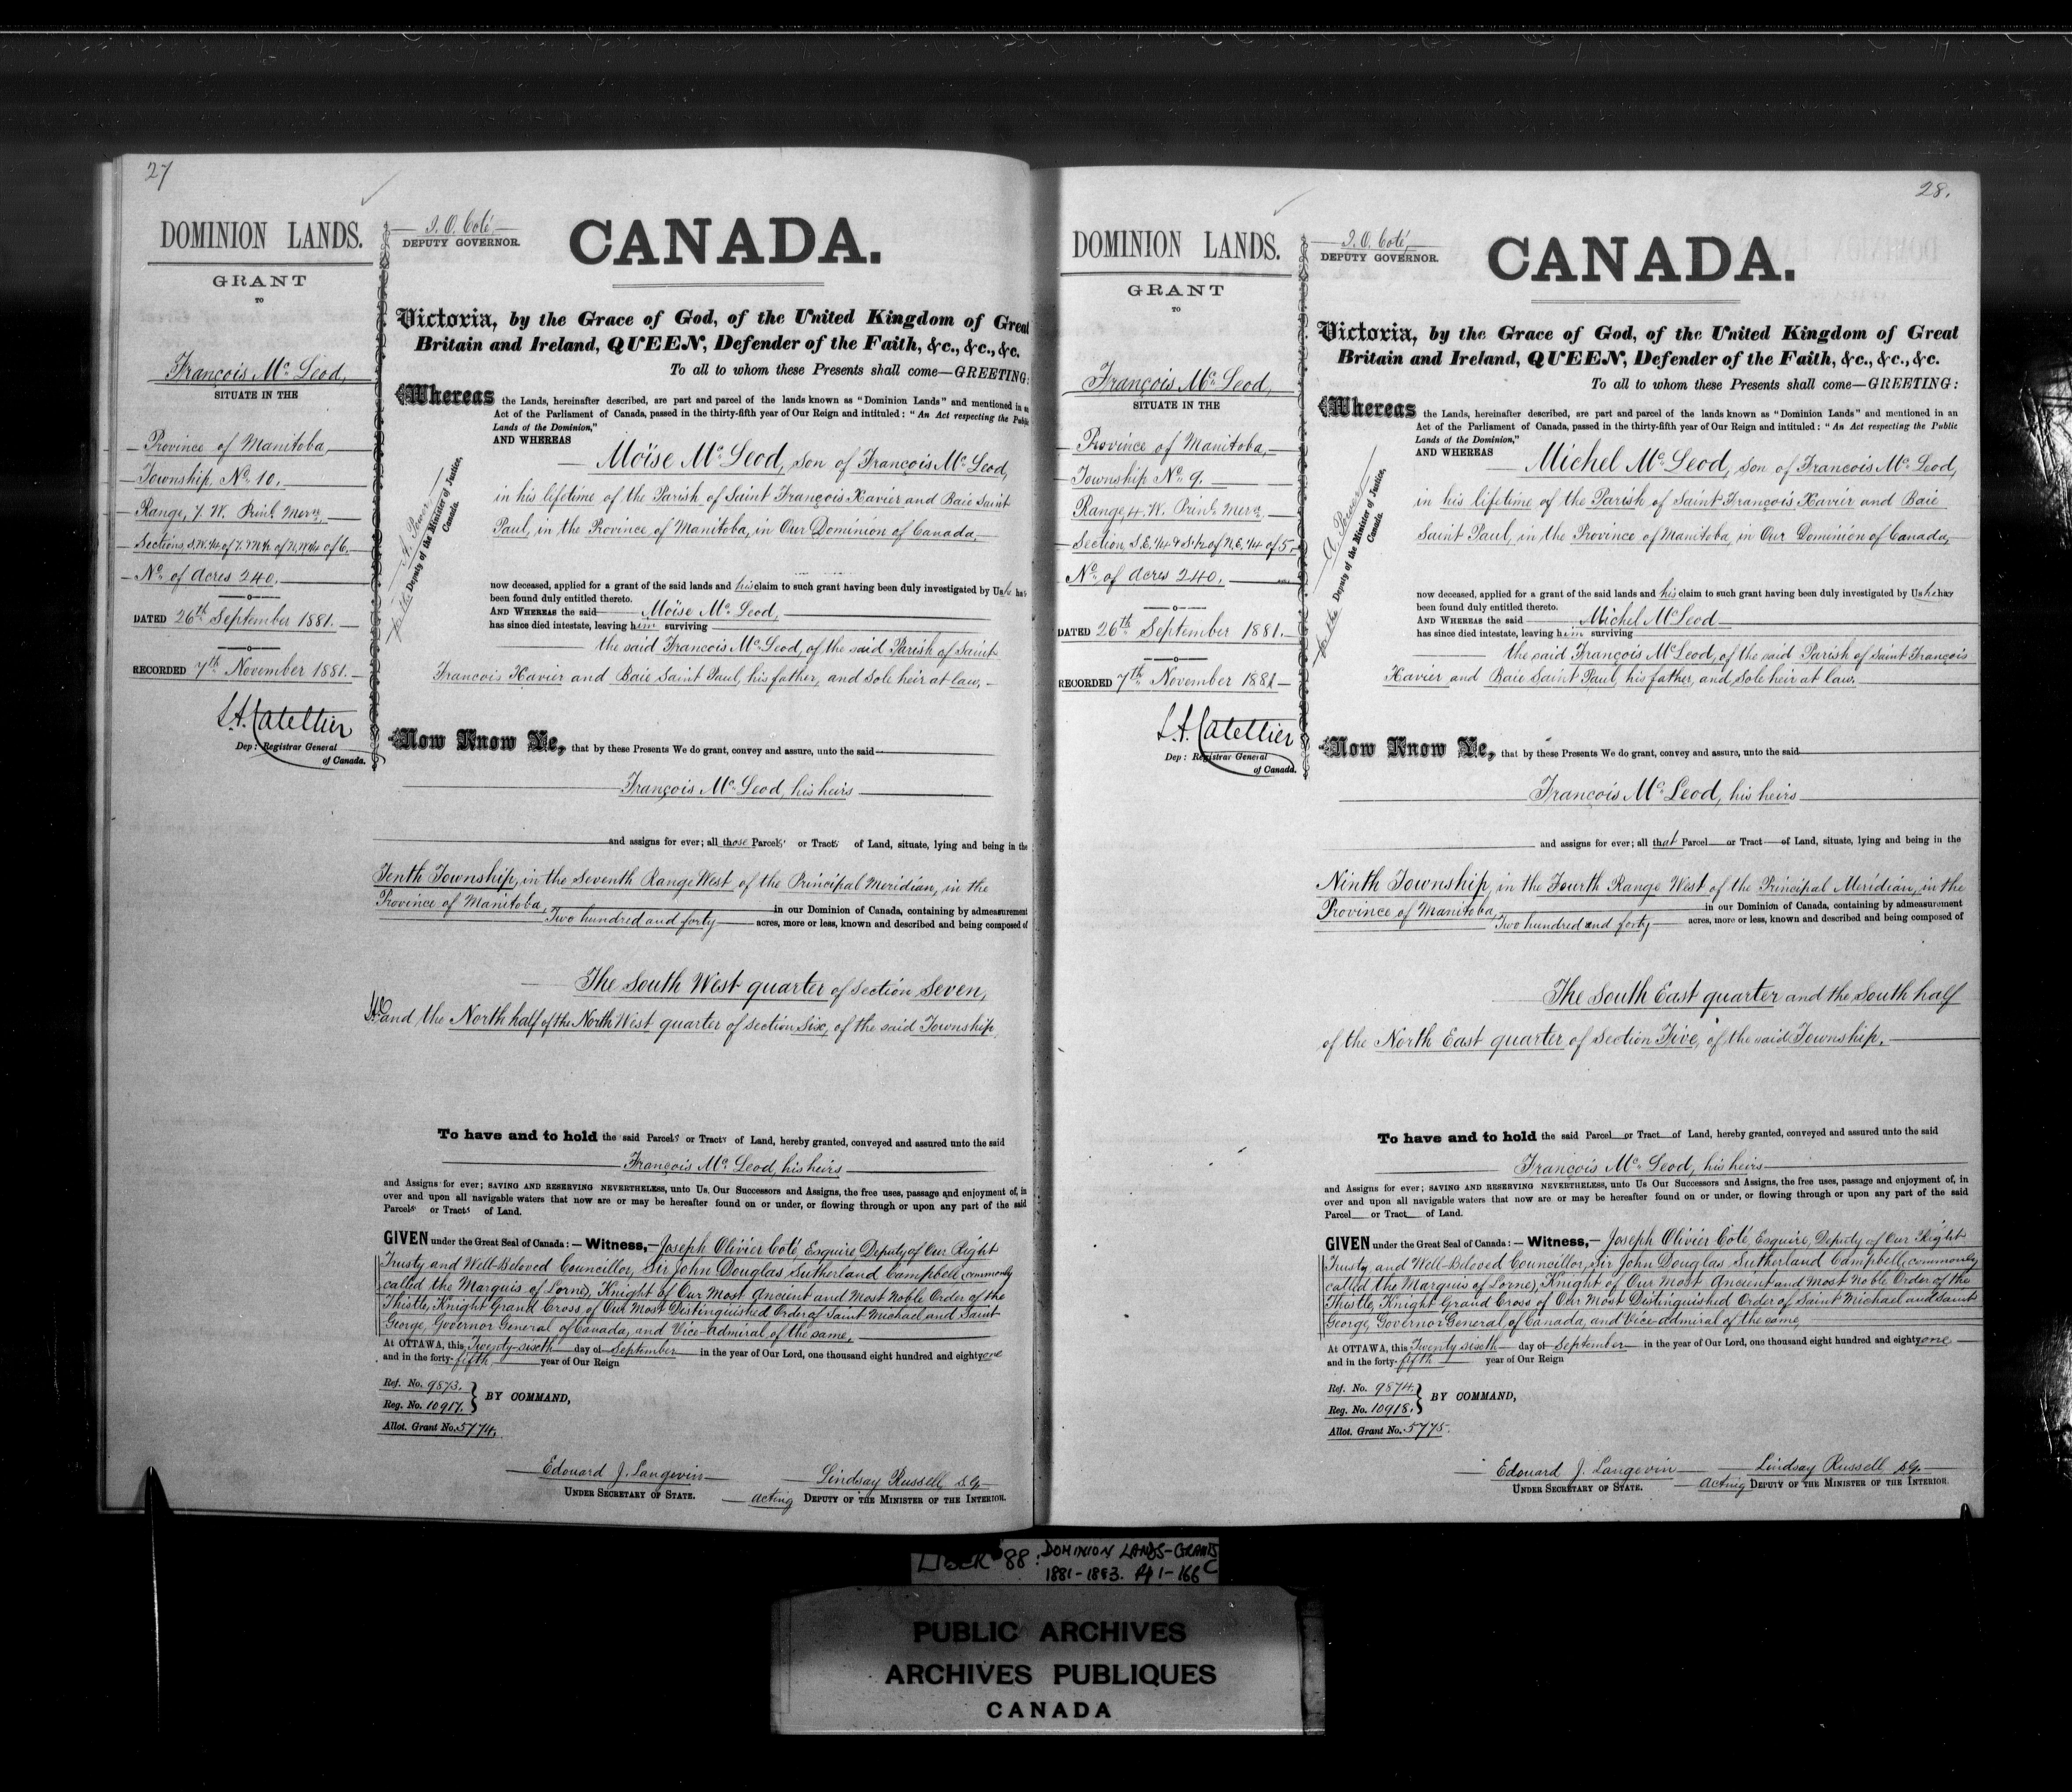 27
DOMINION LANDS.
GRANT
TO
François Mc. Leod,
SITUATE IN THE
Province of Manitoba,
Township, No. 10.
Range, 7. W. Prinl. Mern.
Sections, S.W. 1/4 of 7. & N 1/2 of N.W 1/4 of 6.
No. of Acres 240.
DATED 26th September 1881.
RECORDED 7th November 1881.
L.A. Catellier
Dep: Registrar General
of Canada.
J. O. Coté,
DEPUTY GOVERNOR.
A. Power
for the Deputy of the Minister of Justice,
Canada.
CANADA.
Victoria, by the Grace of God, of the United Kingdom of Great
Britain and Ireland, QUEEN, Defender of the Faith, &c., &c., &c.
To all to whom these Presents shall come—GREETING:
Whereas the Lands, hereinafter described, are part and parcel of the lands known as "Dominion Lands" and mentioned in an
Act of the Parliament of Canada, passed in the thirty-fifth year of Our Reign and intituled: "An Act respecting the Public
Lands of the Dominion,"
AND WHEREAS
Moïse Mc. Leod, son of François Mc. Leod,
in his lifetime of the Parish of Saint François Xavier and Baie Saint
Paul, in the Province of Manitoba, in Our Dominion of Canada,
now deceased, applied for a grant of the said lands and his claim to such grant having been duly investigated by Us he has
been found duly entitled thereto.
AND WHEREAS the said Moïse Mc. Leod,
has since died intestate, leaving him surviving
the said François Mc. Leod, of the said Parish of Saint
François Xavier and Baie Saint Paul, his father, and sole heir at law,
Now Know Ye, that by these Presents We do grant, convey and assure, unto the said
François Mc. Leod, his heirs
and assigns for ever; all those Parcels or Tracts of Land, situate, lying and being in the
Tenth Township, in the Seventh Range West of the Principal Meridian, in the
Province of Manitoba, in our Dominion of Canada, containing by admeasurement
Two hundred and forty acres, more or less, known and described and being composed of
The South West quarter of section Seven,
and the North half of the North West quarter of section Six, of the said Township
To have and to hold the said Parcels or Tracts of Land, hereby granted, conveyed and assured unto the said
François Mc. Leod, his heirs
and Assigns for ever; SAVING AND RESERVING NEVERTHELESS, unto Us, Our Successors and Assigns, the free uses, passage and enjoyment of, in
over and upon all navigable waters that now are or may be hereafter found on or under, or flowing through or upon any part of the said
Parcels or Tracts of Land.
GIVEN under the Great Seal of Canada:—Witness,—Joseph Olivier Coté, Esquire, Deputy of Our Right
Trusty and Well-Beloved Councillor, Sir John Douglas Sutherland Campbell (commonly
called the Marquis of Lorne), Knight of Our Most Ancient and Most Noble Order of the
Thistle, Knight Grand Cross of Our Most Distinguished Order of Saint Michael and Saint
George, Governor General of Canada, and Vice-Admiral of the same,
At OTTAWA, this Twenty-sixth day of September in the year of Our Lord, one thousand eight hundred and eighty one
and in the forty-fifth year of Our Reign
Ref. No. 9873.
Reg. No. 10917.
BY COMMAND,
Allot. Grant No. 5774.
Edouard J. Langevin
UNDER SECRETARY OF STATE.
Lindsay Russell, S.G.
acting DEPUTY OF THE MINISTER OF THE INTERIOR.
28.
DOMINION LANDS.
GRANT
TO
François Mc. Leod,
SITUATE IN THE
Province of Manitoba,
Township No. 9.
Range, 4. W. Prinl. Mern.
Section, S.E. 1/4 & S 1/2 of N.E. 1/4 of 5.
No. of Acres 240.
DATED 26th September 1881.
RECORDED 7th November 1881
L.A. Catellier
Dep: Registrar General
of Canada.
J. O. Coté,
DEPUTY GOVERNOR.
A. Power
for the Deputy of the Minister of Justice,
Canada.
CANADA.
Victoria, by the Grace of God, of the United Kingdom of Great
Britain and Ireland, QUEEN, Defender of the Faith, &c., &c., &c.
To all to whom these Presents shall come—GREETING:
Whereas the Lands, hereinafter described, are part and parcel of the lands known as "Dominion Lands" and mentioned in an
Act of the Parliament of Canada, passed in the thirty-fifth year of Our Reign and intituled: "An Act respecting the Public
Lands of the Dominion,"
AND WHEREAS
Michel Mc. Leod, son of François Mc. Leod,
in his lifetime of the Parish of Saint François Xavier and Baie
Saint Paul, in the Province of Manitoba, in Our Dominion of Canada,
now deceased, applied for a grant of the said lands and his claim to such grant having been duly investigated by Us he has
been found duly entitled thereto.
AND WHEREAS the said Michel Mc Leod
has since died intestate, leaving him surviving
the said François Mc. Leod, of the said Parish of Saint François
Xavier and Baie Saint Paul, his father, and sole heir at law.
Now Know Ye, that by these Presents We do grant, convey and assure, unto the said
François Mc. Leod, his heirs
and assigns for ever; all that Parcel or Tract of Land, situate, lying and being in the
Ninth Township, in the Fourth Range West of the Principal Meridian, in the
Province of Manitoba, in our Dominion of Canada, containing by admeasurement
Two hundred and forty acres, more or less, known and described and being composed of
The South East quarter and the South half
of the North East quarter of section Five, of the said Township.
To have and to hold the said Parcel or Tract of Land, hereby granted, conveyed and assured unto the said
François Mc. Leod, his heirs
and Assigns for ever; SAVING AND RESERVING NEVERTHELESS, unto Us Our Successors and Assigns, the free uses, passage and enjoyment of, in
over and upon all navigable waters that now are or may be hereafter found on or under, or flowing through or upon any part of the said
Parcel or Tract of Land.
GIVEN under the Great Seal of Canada:—Witness,—Joseph Olivier Coté, Esquire, Deputy of Our Right
Trusty and Well-Beloved Councillor, Sir John Douglas Sutherland Campbell (commonly
called the Marquis of Lorne), Knight of Our Most Ancient and Most Noble Order of the
Thistle, Knight Grand Cross of Our Most Distinguished Order of Saint Michael and Saint
George, Governor General of Canada, and Vice-admiral of the same,
At OTTAWA, this Twenty sixth day of September in the year of Our Lord, one thousand eight hundred and eighty one
and in the forty-fifth year of Our Reign
Ref. No. 9874.
Reg. No. 10918.
BY COMMAND,
Allot. Grant No. 5775.
Edouard J. Langevin
UNDER SECRETARY OF STATE.
Lindsay Russell S.G.
acting DEPUTY OF THE MINISTER OF THE INTERIOR.
LIBER 88: DOMINION LANDS-GRANTS
1881-1883. Pp 1-166
PUBLIC ARCHIVES
ARCHIVES PUBLIQUES
CANADA